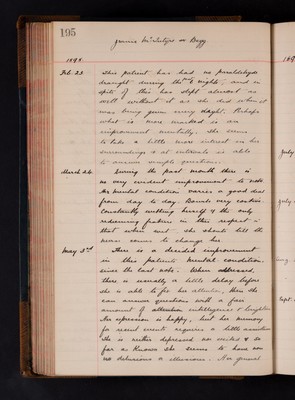 195
Jessie McIntyre or Begg
1895.
Feb. 25. This patient has had no paraldehyde
draught during the nights, and in
spite of this has slept almost as
well without it as she did when it
was being given every night. Perhaps
what is more marked is an
improvement mentally. She seems
to take a little more interest in her
surroundings & at intervals is able
to answer simple questions.
March 24. During the past month there is
no very evident improvement to note
Her mental condition varies a good deal
from day to day. Bowels very costive.
Constantly wetting herself & the only
redeeming feature in this respect is
that when wet she shouts till the
nurse comes to change her
May 3rd There is a decided improvement
in this patient's mental condition
since the last note. When addressed,
there is usually a little delay before
she is able to fix her attention, then she
can answer questions with a fair
amount of attention intelligence &
Her expression is happy, but her memory
for recent events requires a little
She is neither depressed nor excited & so
far as known she seems to have
no delusions or illusions. Her general
July
July
Aug.
Sept.